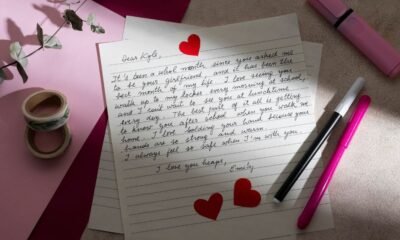 Dear Kyle,
It's been a whole month since you asked me
to be your girlfriend, and it has been the
best month of my life. I love seeing you
walk up to my locker every morning at school,
and I can't wait to see you at lunchtime
every day. The best part of it all is getting
to know you after school when you walk me
home. I love holding your hand because your
hands are so strong and warm.
I always feel so safe when I'm with you
I love you heaps,
Emily.